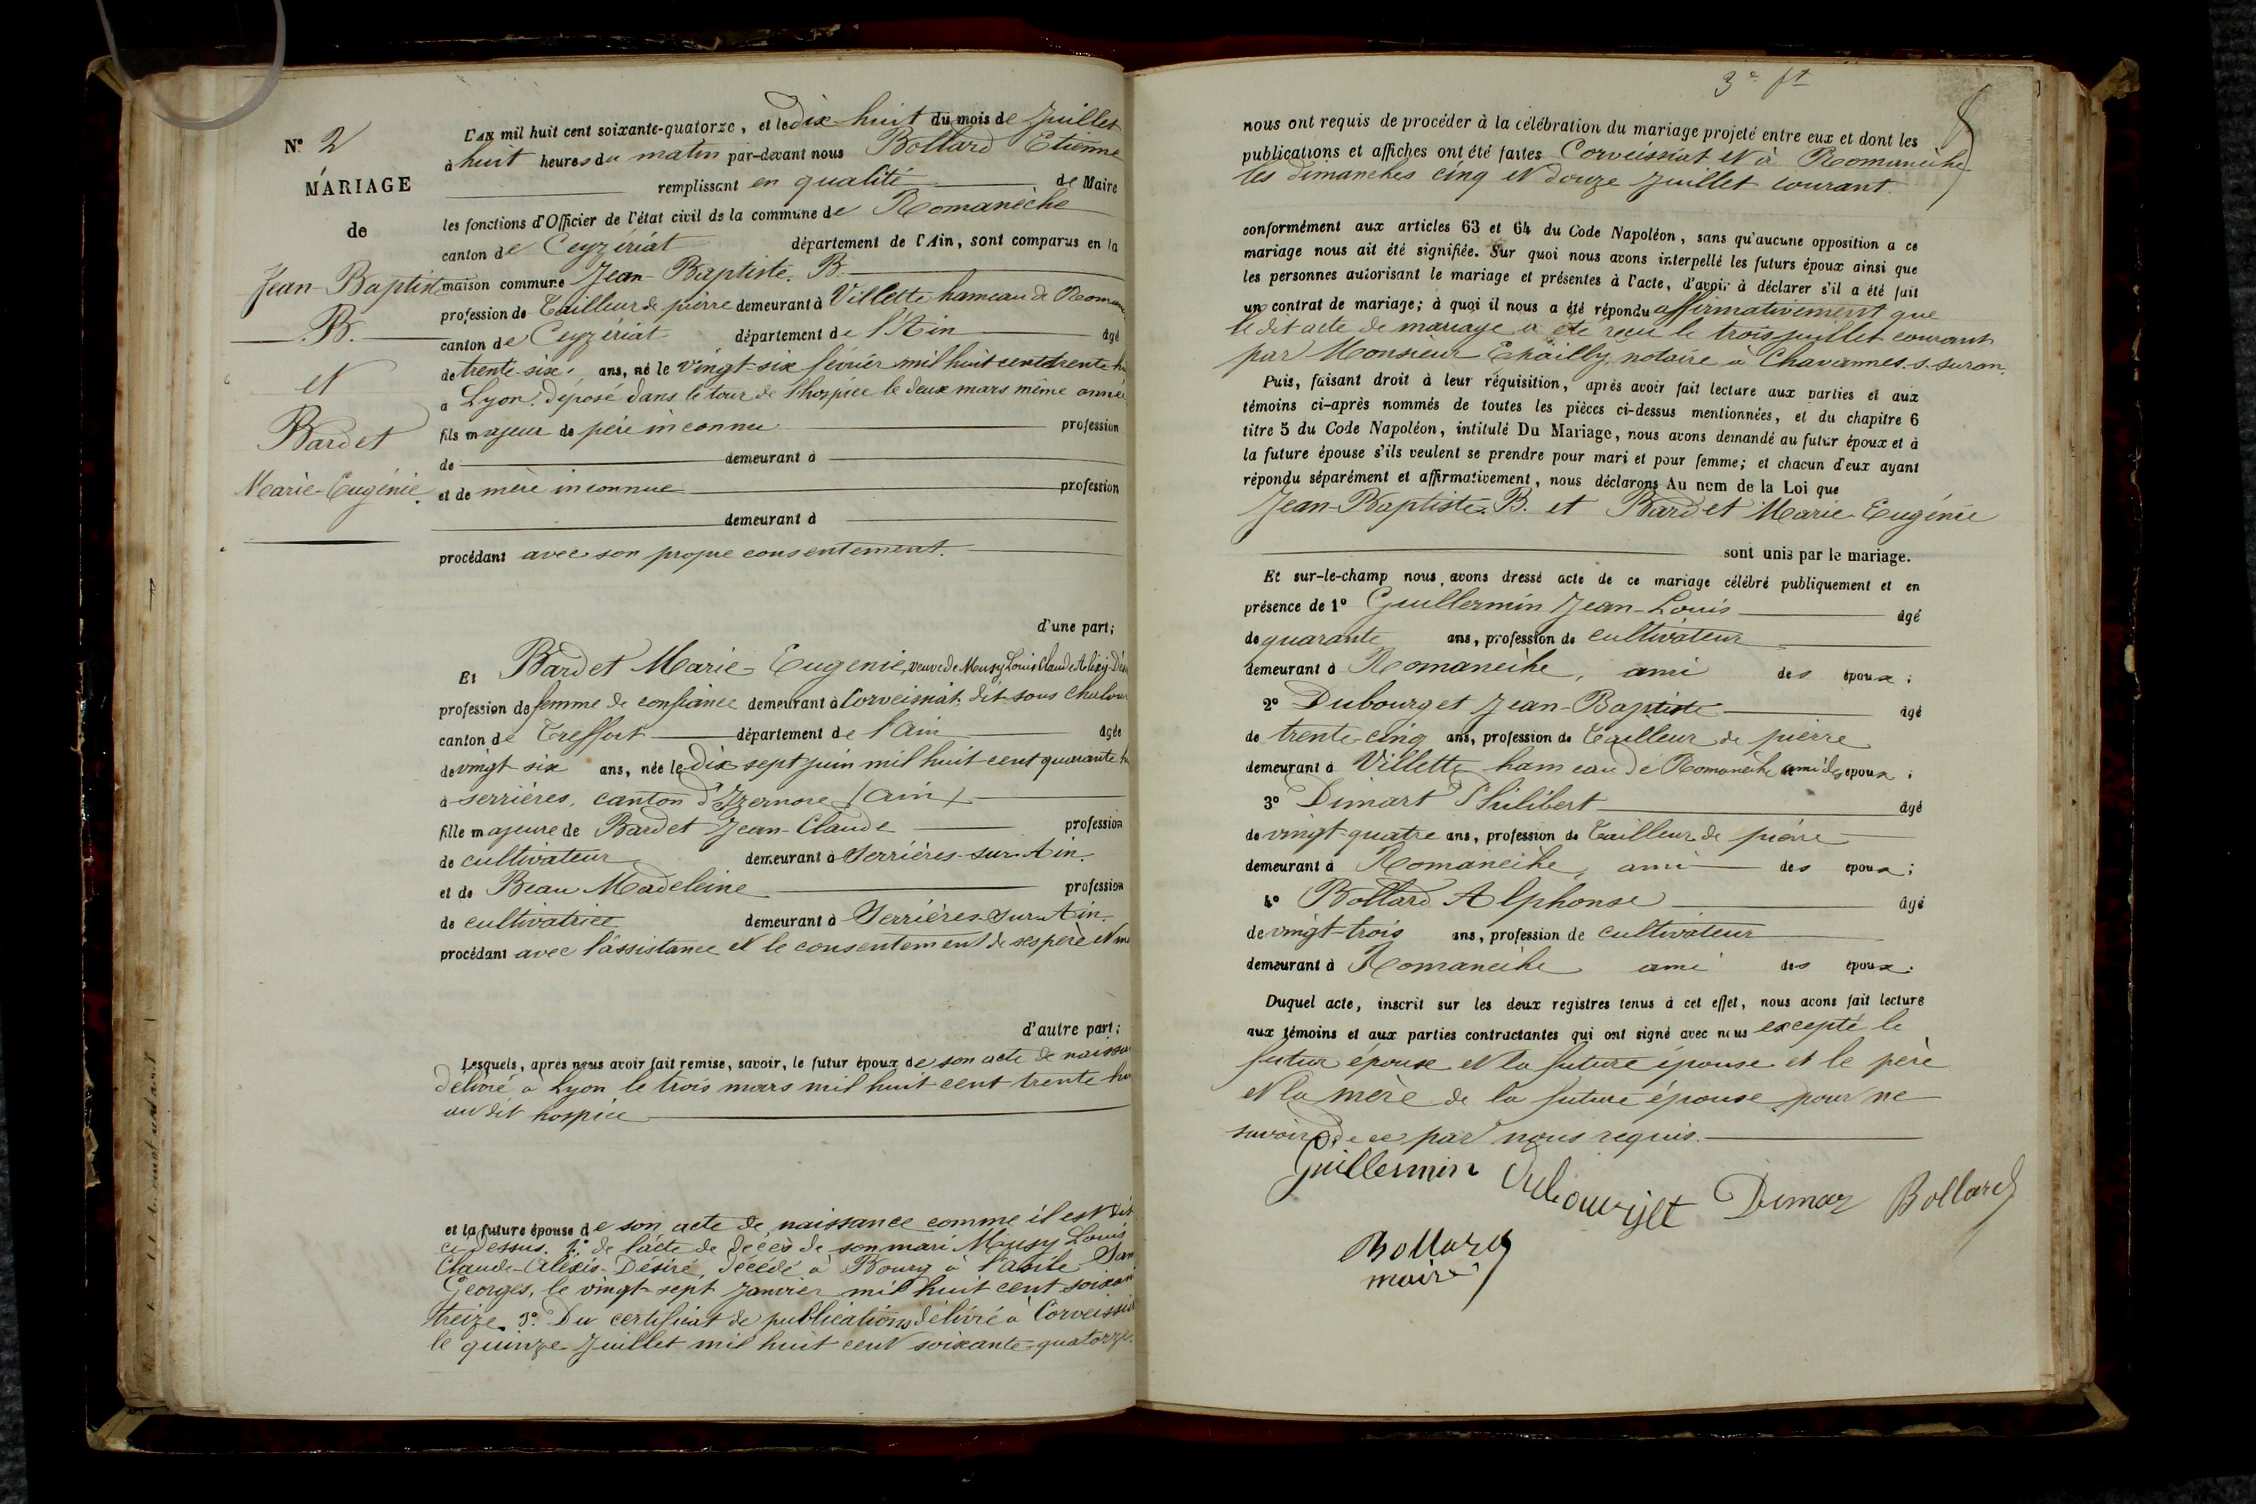 N° 2
MARIAGE
de
Jean-Baptiste
B.
et
Bardet
Marie-Eugénie.
L'AN mil huit cent soixante-quatorze, et le dix-huit du mois de Juillet
à huit heures du matin par-devant nous Bollard Etienne
remplissant en qualité de Maire
les fonctions d'Officier de l'état civil de la commune de Romanèche
canton de Ceyzériat département de l'Ain, sont comparus en la
maison commune Jean-Baptiste. B.
profession de Tailleur de pierre demeurant à Villette hameau de
canton de Ceyzériat département de l'Ain âgé
de trente-six ans, né le vingt-six février mil huit cent trente
à Lyon. déposé dans le tour de l'hospice le deux mars même année
fils majeur de père inconnu profession
de demeurant à
et de mère inconnue profession
demeurant à
procédant avec son propre consentement.
d'une part;
Et Bardet Marie-Eugénie, veuve de Musy Louis Claude Alexis
profession de femme de confiance demeurant à Corveissiat, dit sous
canton de Treffort département de l'Ain âgée
de vingt-six ans, née le Dix-sept juin mil huit cent quarante
à serrières, canton d'Izernore (Ain)
fille majeure de Bardet Jean-Claude profession
de cultivateur demeurant à Serrières-sur-Ain.
et de Beau Madeleine profession
de cultivatrice demeurant à Serrières-sur-Ain.
procédant avec l'assistance et le consentement de ses père et
d'autre part;
Lesquels, après nous avoir fait remise, savoir, le futur époux de son acte de
délivré à Lyon le trois mars mil huit cent trente
au dit hospice
et la future épouse de son acte de naissance comme il est dit
ci dessus. 2° de l'acte de décès de son mari Musy Louis
Claude-Alexis-Désiré, décédé à Bourg à l'asile
Georges, le vingt-sept janvier mil huit cent
treize. 3° Du certificat de publications délivré à
le quinze Juillet mil huit cent soixante-quatorze.
3e ft
nous ont requis de procéder à la célébration du mariage projeté entre eux et dont les
publications et affiches ont été faites Corveissiat et à Romanèche
les dimanches cinq et douze Juillet courant.
conformément aux articles 63 et 64 du Code Napoléon, sans qu'aucune opposition a ce
mariage nous ait été signifiée. Sur quoi nous avons interpellé les futurs époux ainsi que
les personnes autorisant le mariage et présentes à l'acte, d'avoir à déclarer s'il a été fait
un contrat de mariage; à quoi il nous a été répondu affirmativement que
le dit acte de mariage a été reçu le trois juillet courant
par Monsieur notaire à Chavannes-s-suran.
Puis, faisant droit à leur réquisition, après avoir fait lecture aux parties et aux
témoins ci-après nommés de toutes les pièces ci-dessus mentionnées, et du chapitre 6
titre 5 du Code Napoléon, intitulé Du Mariage, nous avons demandé au futur époux et à
la future épouse s'ils veulent se prendre pour mari et pour femme; et chacun d'eux ayant
répondu séparément et affirmativement, nous déclarons Au nom de la Loi que
Jean-Baptiste. B. et Bardet Marie Eugénie
sont unis par le mariage.
Et sur-le-champ nous avons dressé acte de ce mariage célébré publiquement et en
présence de 1° Guillermin Jean-Louis âgé
de quarante ans, profession de cultivateur
demeurant à Romanèche, ami des époux;
2° Dubourget Jean-Baptiste âgé
de trente-cinq ans, profession de Tailleur de pierre
demeurant à Villette hameau de Romanèche ami des époux;
3° Dimart Philibert âgé
de vingt-quatre ans, profession de Tailleur de pierre
demeurant à Romanèche, ami des époux;
4° Bollard Alphonse âgé
de vingt-trois ans, profession de cultivateur
demeurant à Romanèche ami des époux.
Duquel acte, inscrit sur les deux registres tenus à cet effet, nous avons fait lecture
aux témoins et aux parties contractantes qui ont signé avec nous excepté le
futur époux et la future épouse et le père
et la mère de la future épouse pour ne
savoir de ce par nous requis.
Guillermin Dubourget Dimar Bollard
Bollard
maire